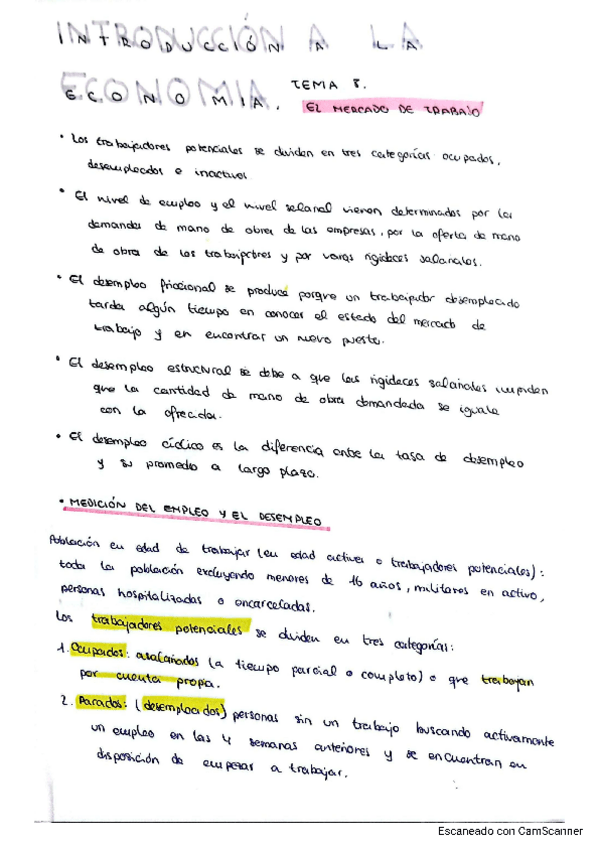 INTRODUCCIÓN A LA
ECONOMIA. TEMA 8.
EL MERCADO DE TRABAJO
• Los trabajadores potenciales se dividen en tres categorías ocupados,
desempleados e inactivos
• El nivel de empleo y el nivel salarial vienen determinados por la
demandas de mano de obra de las empresas, por la oferta de mano
de obra de los trabajadores y por varas rigideces salariales.
• El desempleo friccional se produce porque un trabajador desempleado
tarda algún tiempo en conocer el estado del mercado de
trabajo y en encontrar un nuevo puesto.
• El desempleo estructural se debe a que las rigideces salariales impiden
que la cantidad de mano de obra demandada se iguale
con la ofrecida.
• El desempleo cíclico es la diferencia entre la tasa de desempleo
y su promedio a largo plazo.
• MEDICIÓN DEL EMPLEO Y EL DESEMPLEO
Población en edad de trabajar (en edad activa o trabajadores potenciales):
toda la población excluyendo menores de 16 años, militares en activo,
personas hospitalizadas o encarceladas.
Los trabajadores potenciales se dividen en tres categorías:
1. Ocupados: asalariados (a tiempo parcial o completo) o que trabajan
por cuenta propia.
2. Parados: (desempleados) personas sin un trabajo buscando activamente
un empleo en las 4 semanas anteriores y se encuentran en
disposición de empezar a trabajar.
Escaneado con CamScanner